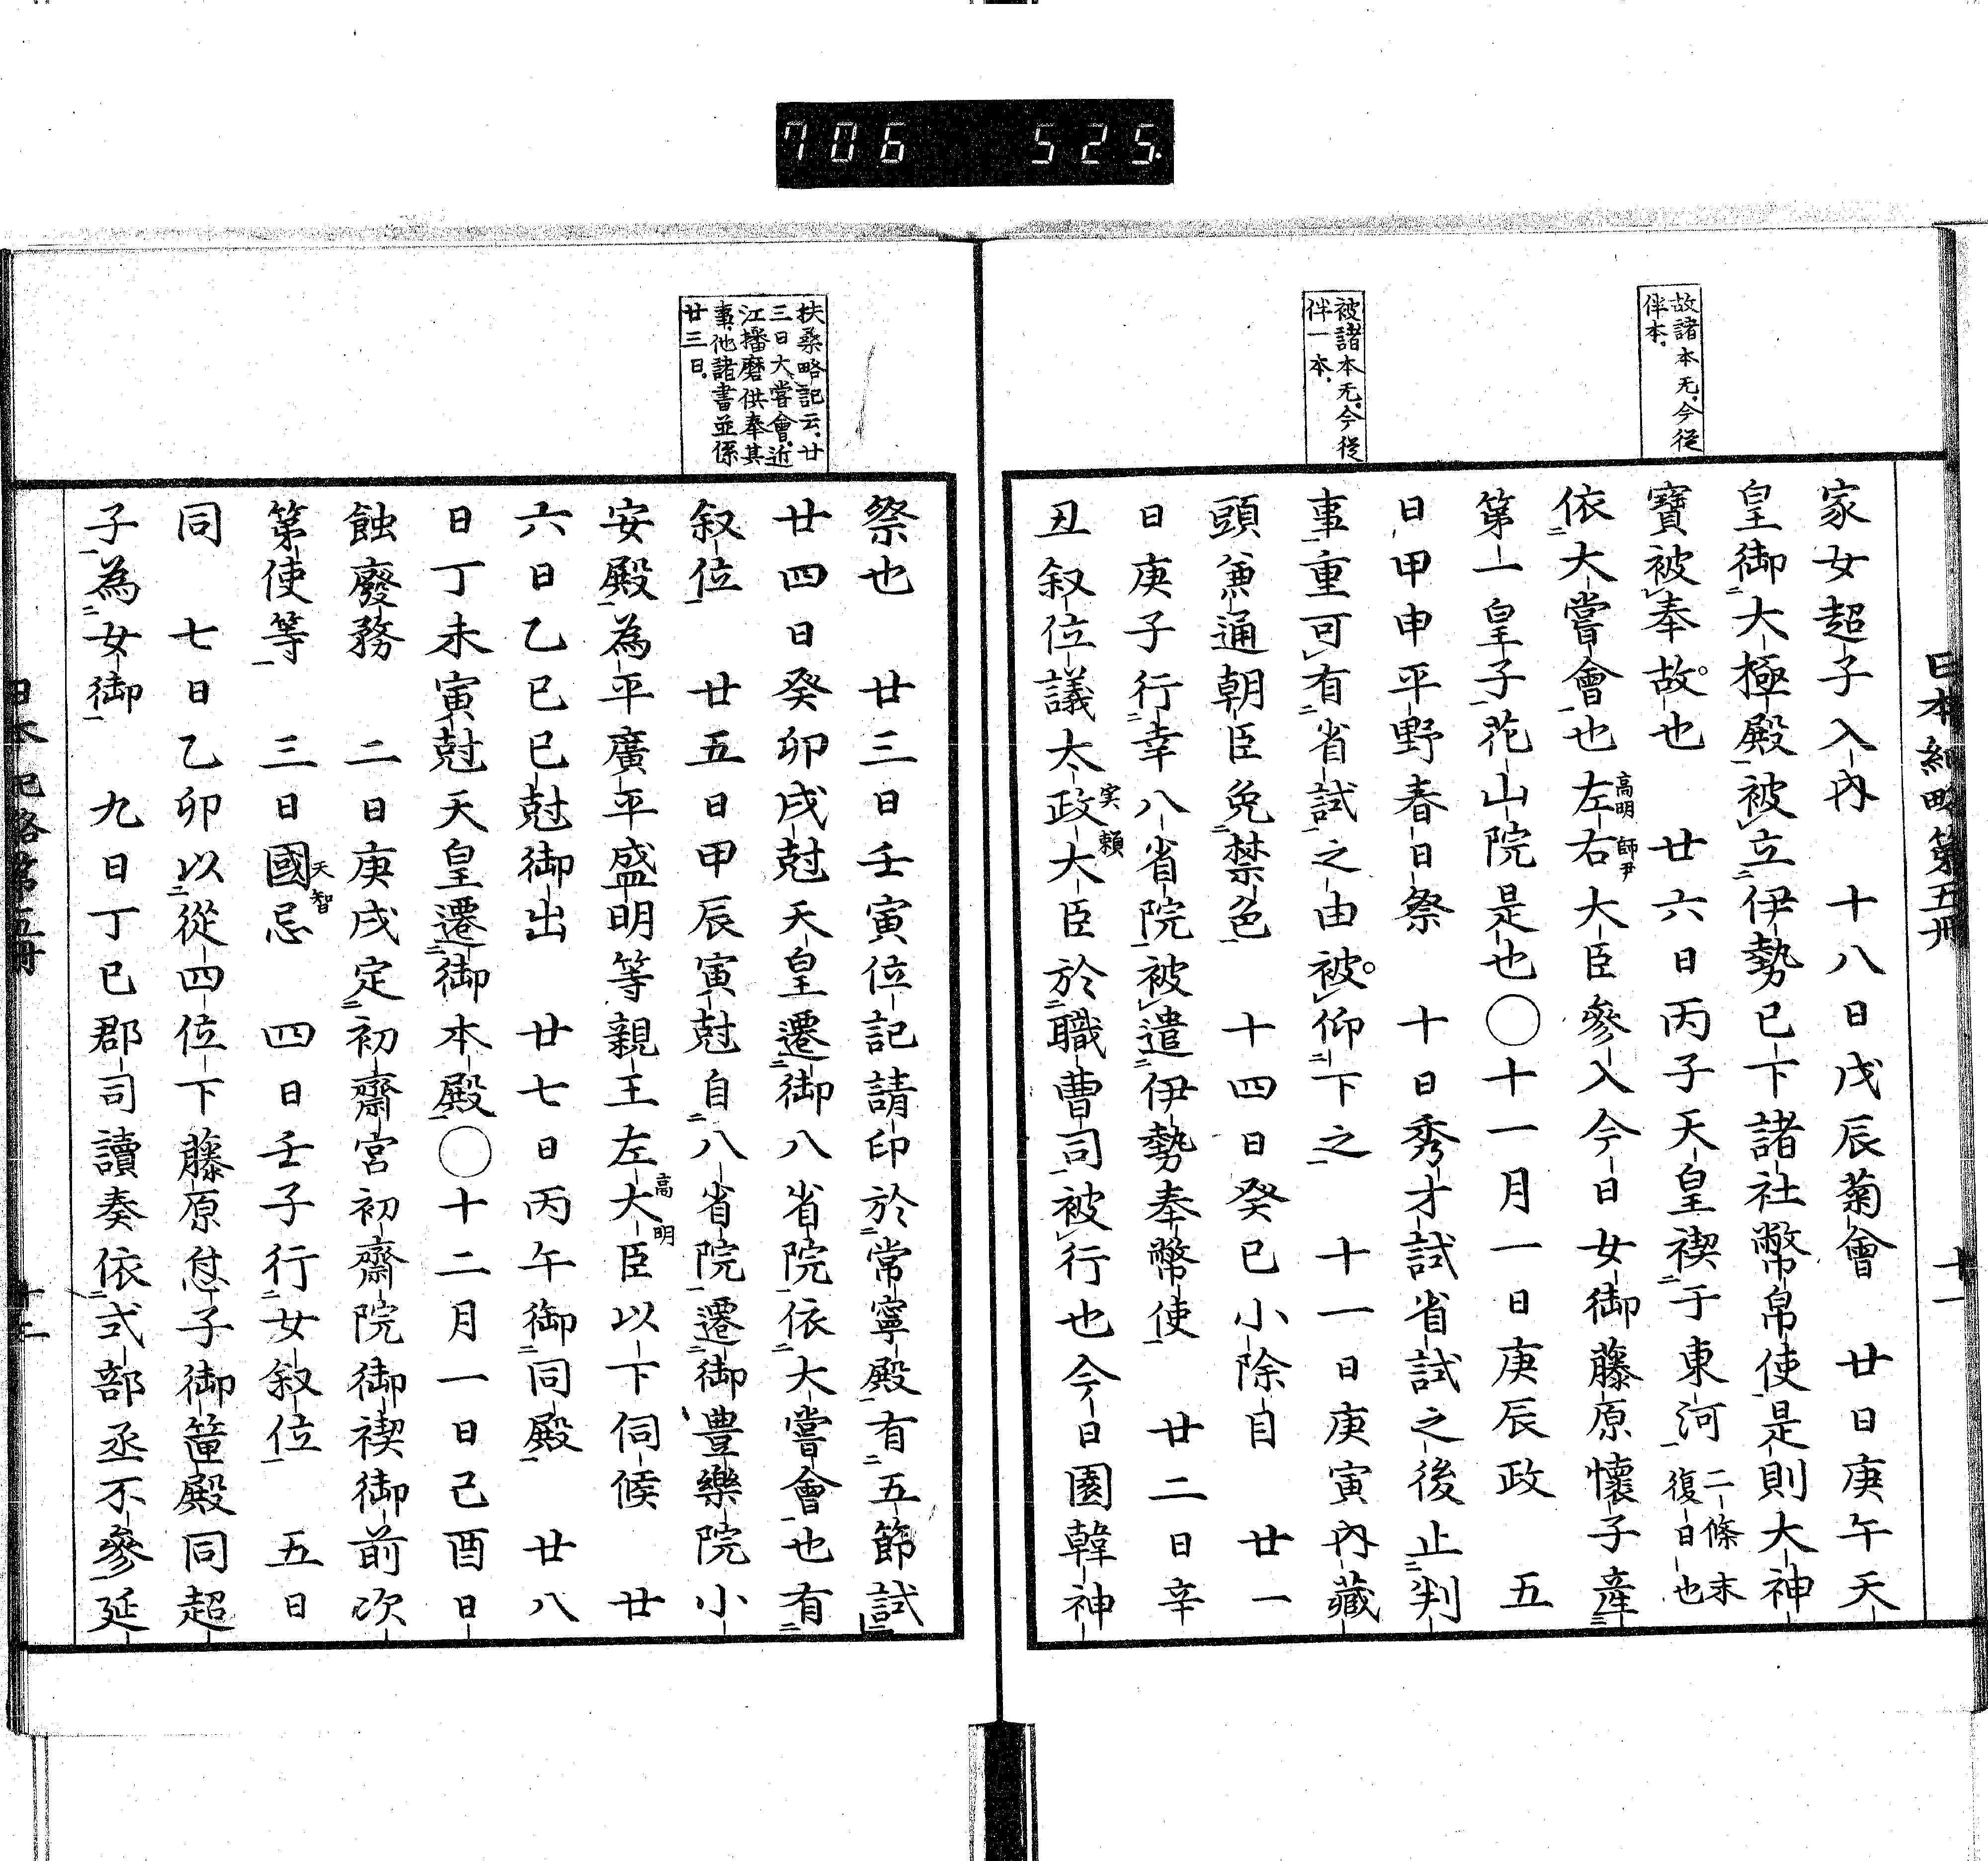 706 525
故諸本无今從
伴本
被諸本无今從
伴一本
日本紀略第五冊 十一
家女超子入內 十八日戊辰菊會 廿日庚午天
皇御二大極殿一被レ立二伊勢已下諸社幣帛使一是則大神
寶被レ奉故也 廿六日丙子天皇禊二于東河一二條末復日也
依二大嘗會一也左高明右師尹大臣參入今日女御藤原懷子產二
第一皇子一花山院是也〇十一月一日庚辰政 五
日甲申平野春日祭 十日秀才試省試之後止二判
事一重可レ有二省試一之由被レ仰二下之一 十一日庚寅內藏
頭兼通朝臣免二禁色一 十四日癸巳小除目 廿一
日庚子行二幸八省院一被レ遣二伊勢奉幣使一 廿二日辛
丑叙位議太政大臣実賴於二職曹司一被レ行也今日園韓神
扶桑略記云廿
三日大嘗會近
江播磨供奉其
事他諸書並係
廿三日
祭也 廿三日壬寅位記請印於二常寧殿一有二五節試一
廿四日癸卯戌尅天皇遷二御八省院一依二大嘗會一也有二
叙位一 廿五日甲辰寅尅自二八省院一遷二御豊樂院小
安殿一為平廣平盛明等親王左大臣高明以下伺候 廿
六日乙巳巳尅御出 廿七日丙午御二同殿一 廿八
日丁未寅尅天皇遷二御本殿一〇十二月一日己酉日
蝕廢務 二日庚戌定二初齋宮初齋院御禊御前次
第使等一 三日國忌天智 四日壬子行二女叙位一 五日
同 七日乙卯以二從四位下藤原怤子御匣殿同超
子一為二女御一 九日丁巳郡司讀奏依二式部丞不參一延
日本紀略第五冊 十二